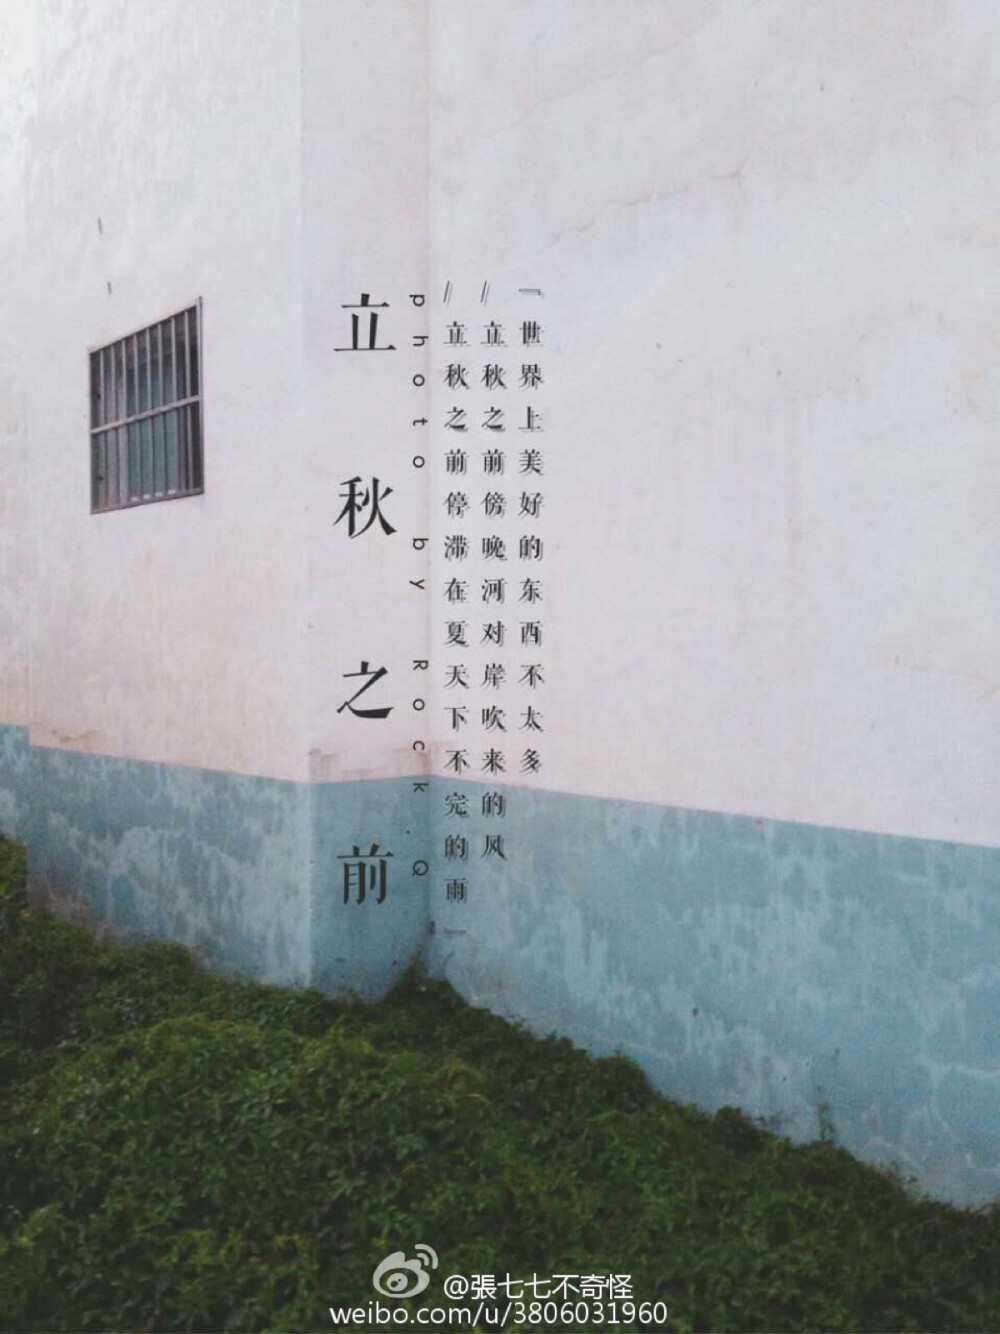 『世界上美好的东西不太多
//立秋之前傍晚河对岸吹来的风
//立秋之前停滞在夏天下不完的雨』
photo by Rock Q
立秋之前
@張七七不奇怪
weibo.com/u/3806031960